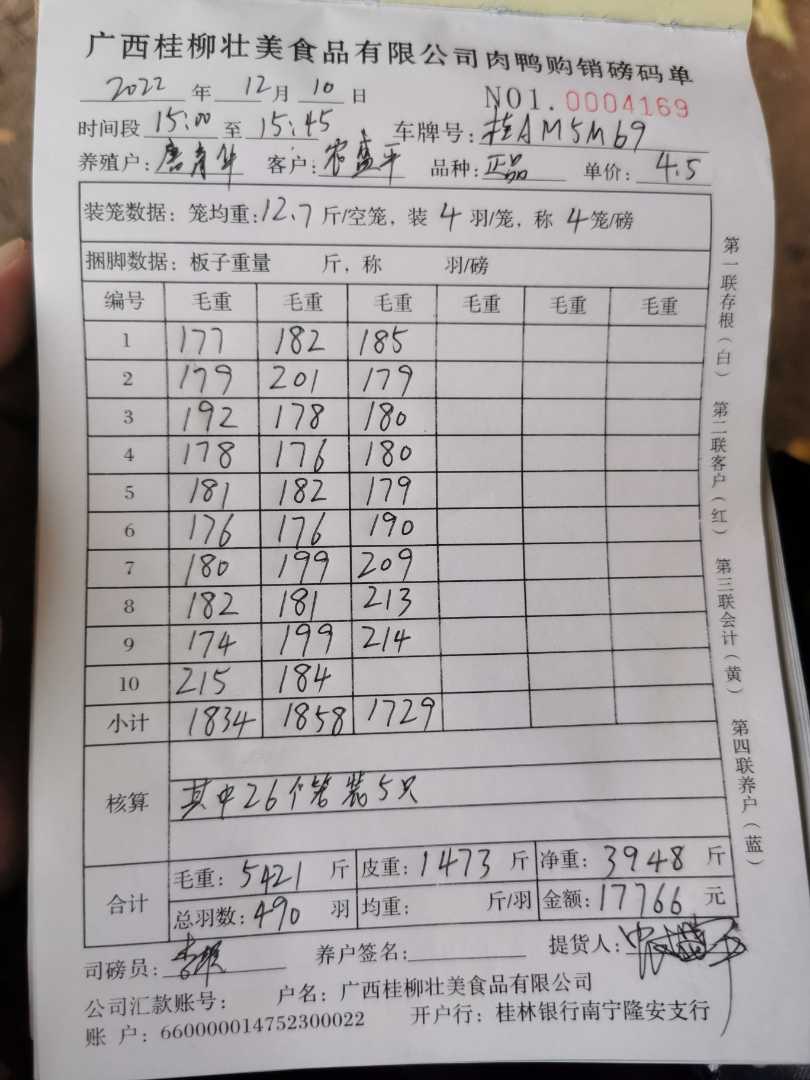 广西桂柳壮美食品有限公司肉鸭购销磅码单
2022 年 12 月 10 日 NO1.0004169
时间段 15:00 至 15:45 车牌号: 桂AM5M69
养殖户: 唐育华 客户: 农盛平 品种: 正品 单价: 4.5
装笼数据: 笼均重: 12.7 斤/空笼, 装 4 羽/笼, 称 4 笼/磅
捆脚数据: 板子重量 斤, 称 羽/磅
编号 毛重 毛重 毛重 毛重 毛重 毛重
1 177 182 185
2 179 201 179
3 192 178 180
4 178 176 180
5 181 182 179
6 176 176 190
7 180 199 209
8 182 181 213
9 174 199 214
10 215 184
小计 1834 1858 1729
核算 其中26个笼装5只
合计 毛重: 5421 斤 皮重: 1473 斤 净重: 3948 斤
总羽数: 490 羽 均重: 斤/羽 金额: 17766 元
司磅员: 养户签名: 提货人:
公司汇款账号: 户名: 广西桂柳壮美食品有限公司
账 户: 660000014752300022 开户行: 桂林银行南宁隆安支行
第一联存根(白) 第二联客户(红) 第三联会计(黄) 第四联养户(蓝)